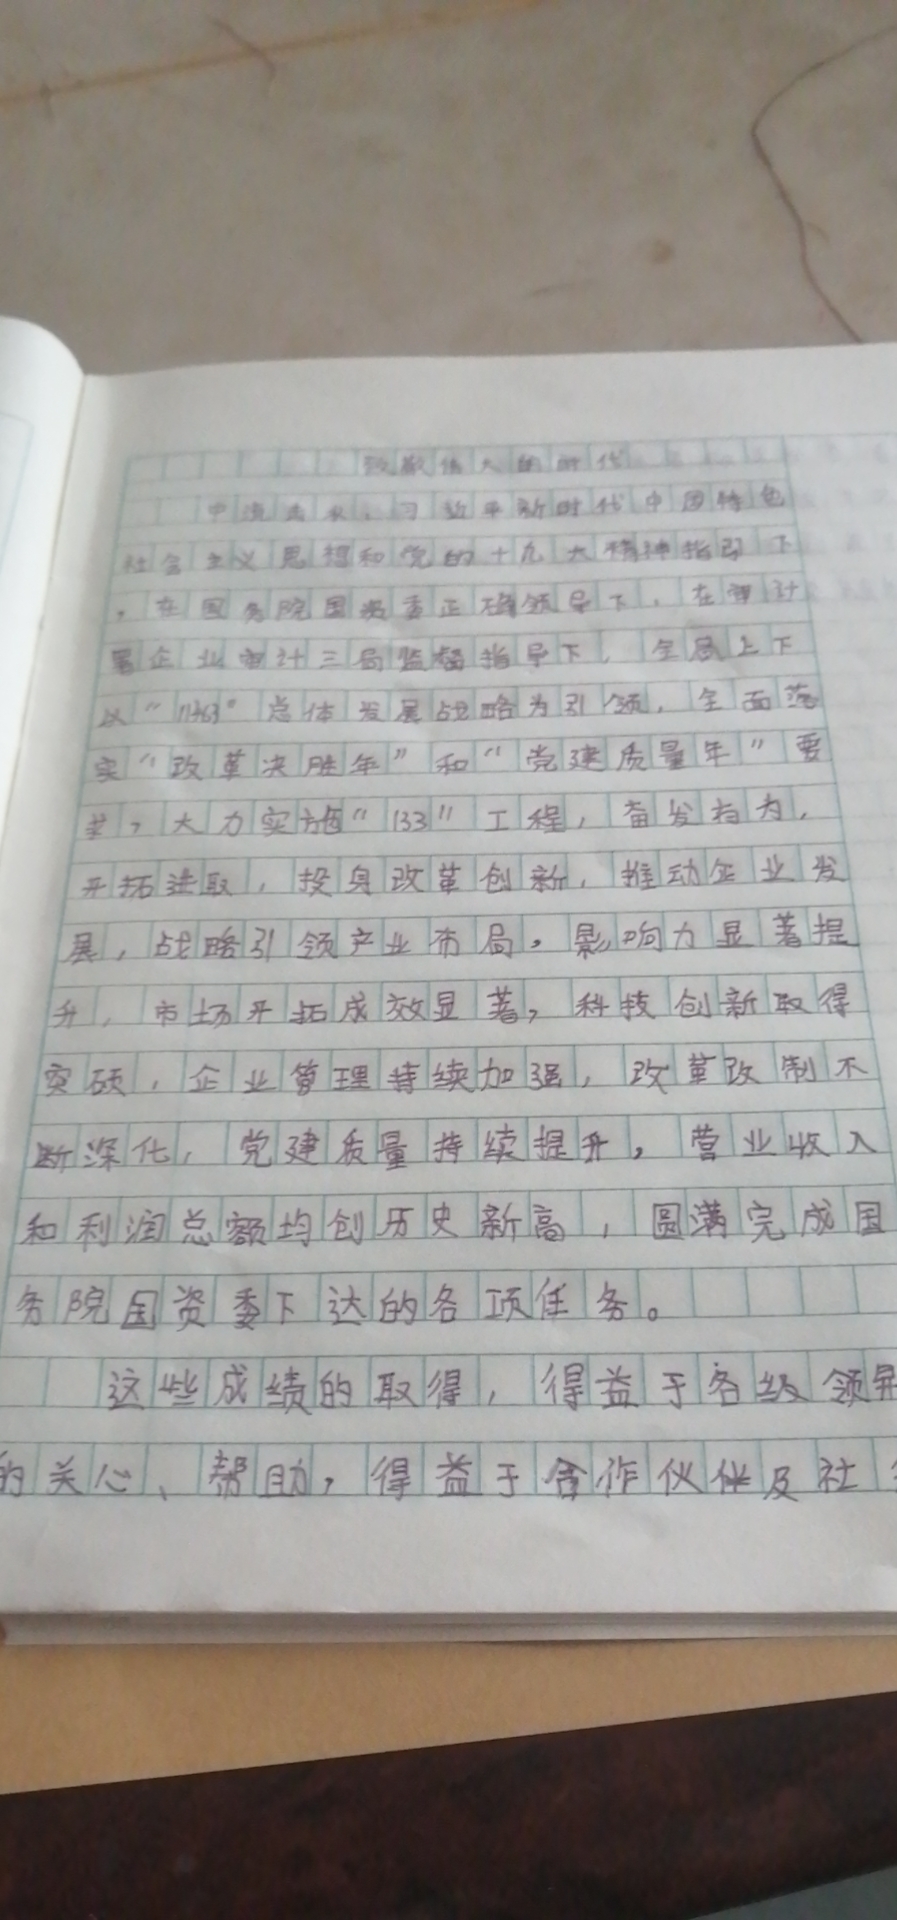 致敬伟大的时代
习近平新时代中国特色
社会主义思想和党的十九大精神指引下
，在国务院国资委正确领导下，在审计
署企业审计三局监督指导下，全局上下
以“ ”总体发展战略为引领，全面落
实“改革决胜年”和“党建质量年”要
求，大力实施“133”工程，奋发有为，
开拓进取，投身改革创新，推动企业发
展，战略引领产业布局。影响力显著提
升，市场开拓成效显著，科技创新取得
突硕，企业管理持续加强，改革改制不
断深化，党建质量持续提升。营业收入
和利润总额均创历史新高，圆满完成国
务院国资委下达的各项任务。
这些成绩的取得，得益于各级领导
的关心、帮助，得益于合作伙伴及社